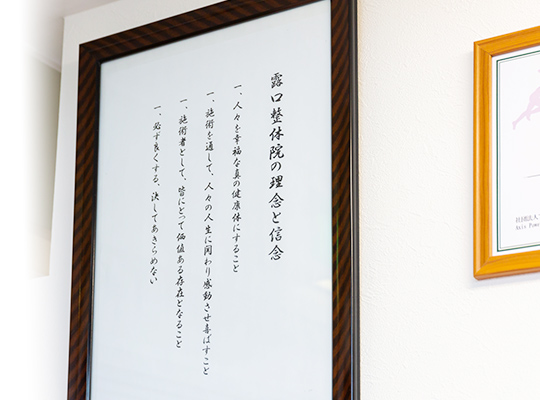 露口整体院の理念と信念
一、人々を幸福な真の健康体にすること
一、施術を通して、人々の人生に関わり感動させ喜ばすこと
一、施術者として、皆にとって価値ある存在となること
一、必ず良くする、決してあきらめない
社団法人